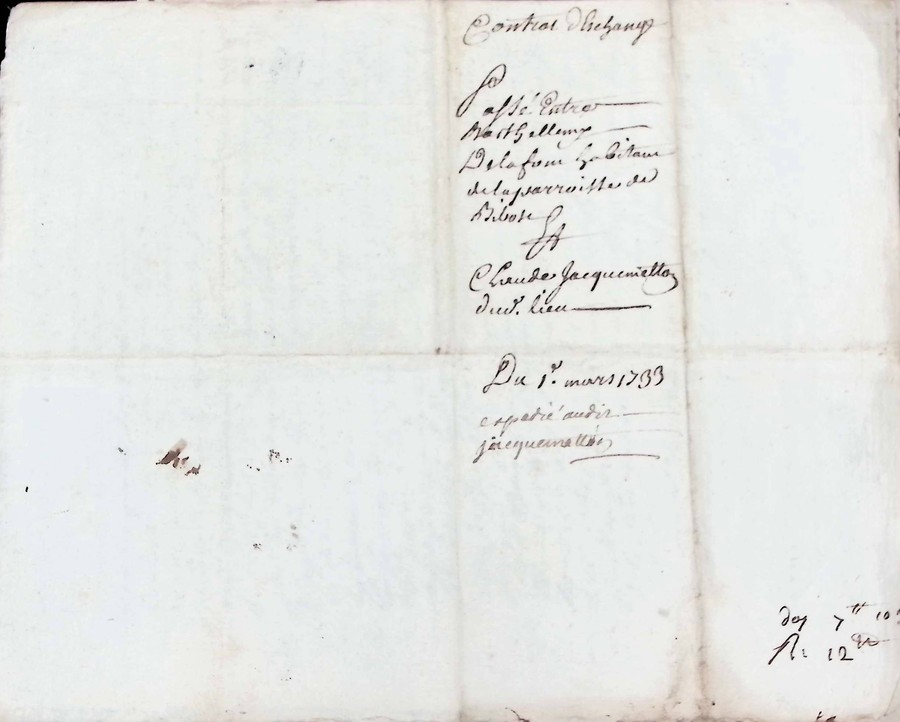 Contrat d'Eschange
Passé Entre
Barthellemy
Delafont habitant
de la parroisse de
Bibost
Et
Claude Jacquemetton
dud. lieu
Du 1er. mars 1733
expedié audit
jacquemetton
7 tt 10
12 tt